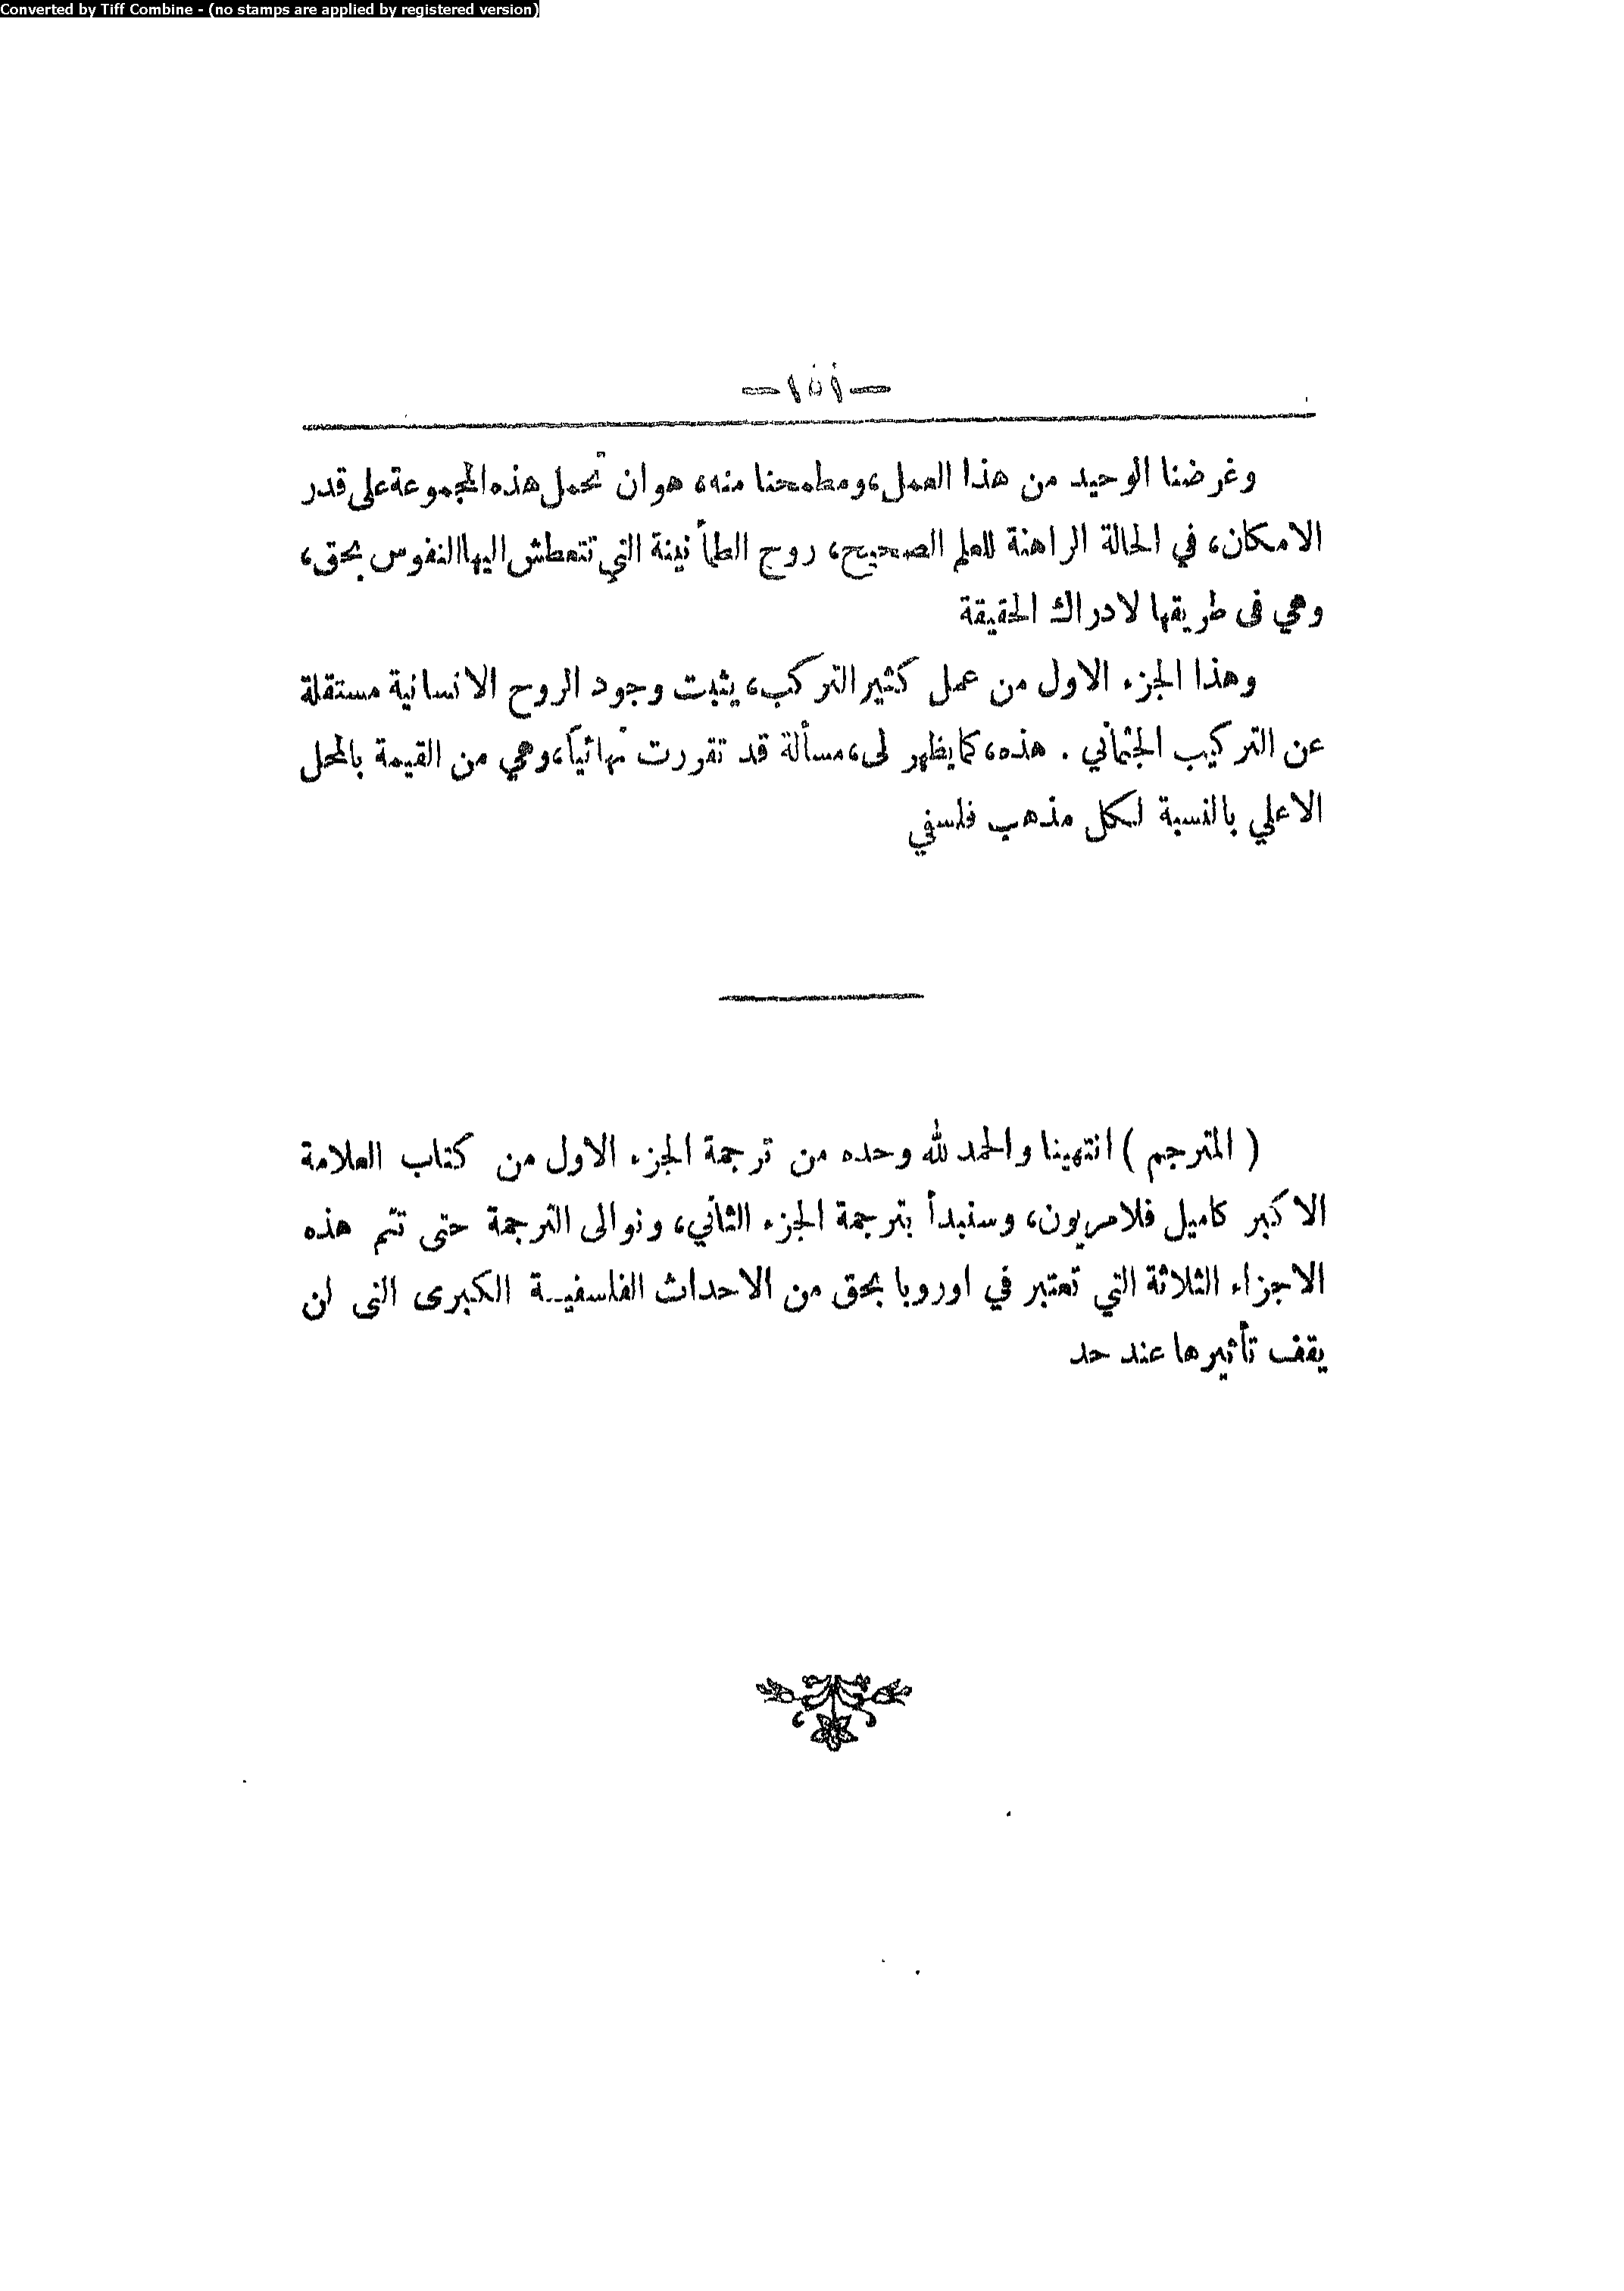 Converted by Tiff Combine - (no stamps are applied by registered version)
وغرضنا الوحيد من هذا العمل، ومطمحنا منه، هو ان تحمل هذه المجموعة على قدر
الامكان، في الحالة الراهنة للعلم الصحيح، روح الطمأنينة التي تتعطش اليها النفوس بحق،
وهي فى طريقها لادراك الحقيقة
وهذا الجزء الاول من عمل كثير التركب، يثبت وجود الروح الانسانية مستقلة
عن التركيب الجثماني . هذه، كما يظهر لى، مسألة قد تقررت نهائياً، وهي من القيمة بالمحل
الاعلي بالنسبة لكل مذهب فلسفي
( المترجم ) انتهينا والحمد لله وحده من ترجمة الجزء الاول من كتاب العلامة
الاكبر كاميل فلامريون، وسنبدأ بترجمة الجزء الثاني، ونوالى الترجمة حتى تتم هذه
الاجزاء الثلاثة التي تعتبر في اوروبا بحق من الاحداث الفلسفيـة الكبرى التى لن
يقف تأثيرها عند حد